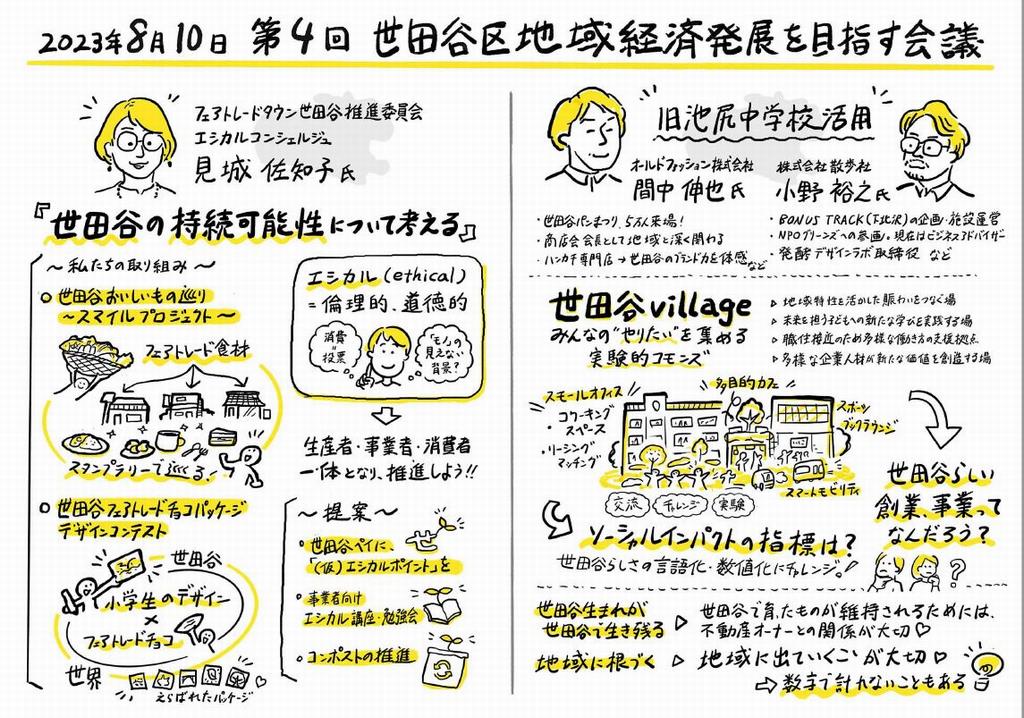 2023年8月10日 第4回 世田谷区地域経済発展を目指す会議
フェアトレードタウン世田谷推進委員会
エシカルコンシェルジュ
見城 佐知子氏
『世田谷の持続可能性について考える』
〜私たちの取り組み〜
世田谷おいしいもの巡り
〜スマイルプロジェクト〜
フェアトレード食材
スタンプラリーで巡る!
世田谷フェアトレードチョコパッケージ
デザインコンテスト
世田谷
小学生のデザイン
×
フェアトレードチョコ
世界
えらばれたパッケージ
エシカル(ethical)
=倫理的、道徳的
消費
=
投票
モノの
見えない
背景?
生産者・事業者・消費者
一体となり、推進しよう!!
〜提案〜
・世田谷ペイに、
「(仮)エシカルポイント」を
せ
・事業者向け
エシカル講座・勉強会
・コンポストの推進
旧池尻中学校活用
オールドファッション株式会社
間中 伸也氏
・世田谷パンまつり、5万人来場!
・商店会会長として地域と深く関わる
・ハンカチ専門店→世田谷のブランド力を体感など
株式会社散歩社
小野 裕之氏
・BONUS TRACK(下北沢)の企画・施設運営
・NPOグリーンズへの参画。現在はビジネスアドバイザー
・発酵デザインラボ取締役 など
世田谷village
みんなの"やりたい"を集める
実験的コモンズ
▷地域特性を活かした賑わいをつなぐ場
▷未来を担う子どもへの新たな学びを実践する場
▷職住接近のため多様な働き方の支援拠点
▷多様な企業人材が新たな価値を創造する場
スモールオフィス
・コワーキング
スペース
・リーシング
マッチング
多目的カフェ
スポーツ
ブックラウンジ
スマートモビリティ
交流
チャレンジ
実験
世田谷らしい
創業、事業って
なんだろう?
?
ソーシャルインパクトの指標は?
世田谷らしさの言語化・数値化にチャレンジ。
世田谷生まれが
世田谷で生き残る
▷
世田谷で育ったものが維持されるためには、
不動産オーナーとの関係が大切♡
地域に根づく ▷ 地域に出ていくことが大切♡
⇨数字で計れないこともある